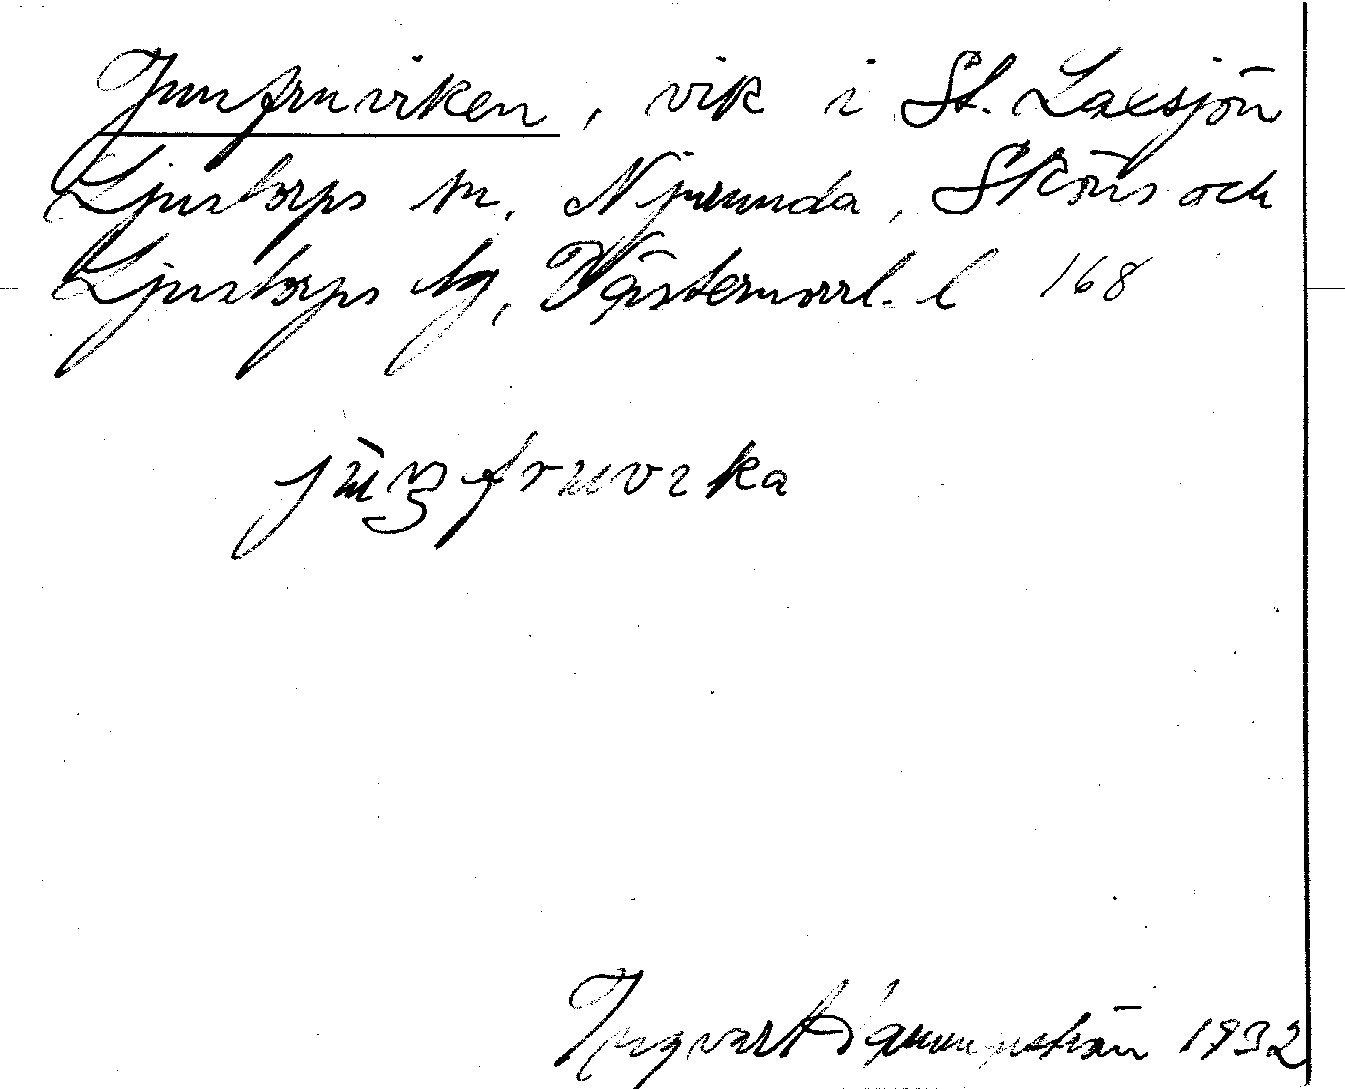 Jungfruviken, vik i St. Laxsjön
Ljustorps sn, Njurunda, Sköns och
Ljustorps tg, Västernorrl. l 168
jùŋfruvika
Ingvar 1932